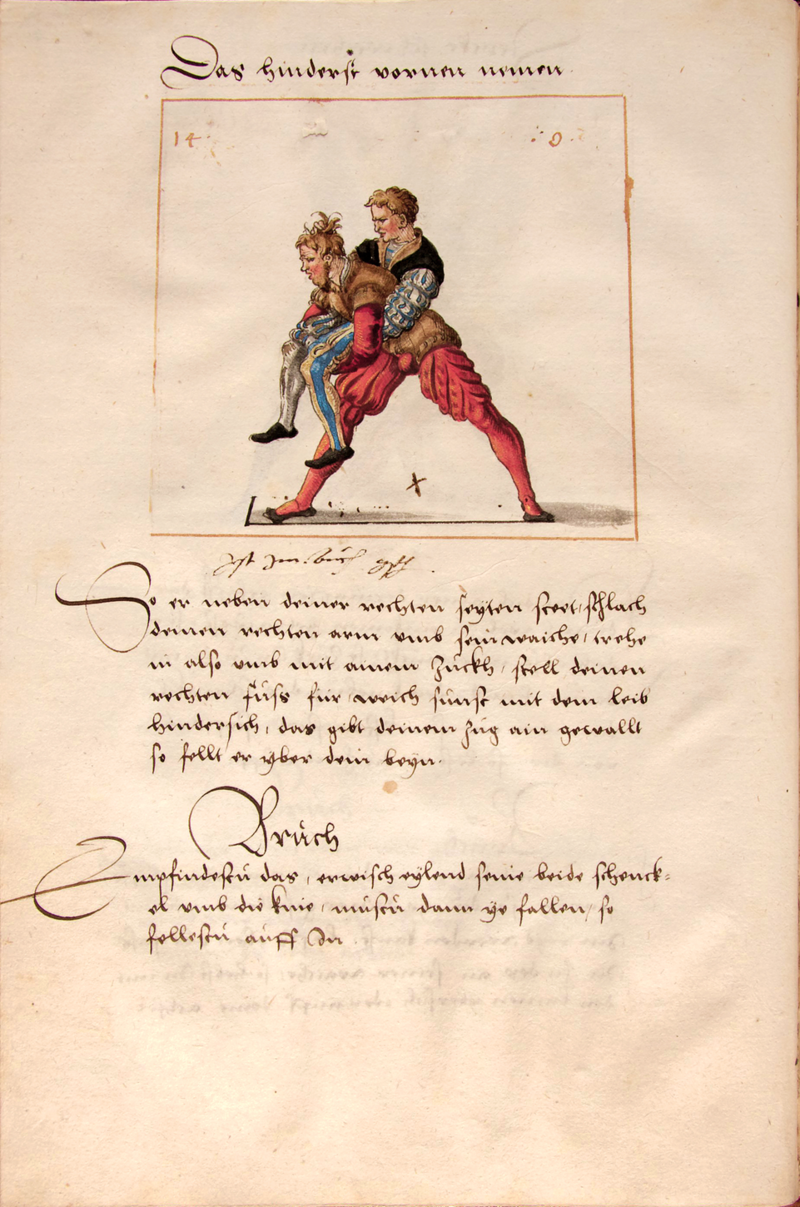 Das hinderst vornen nemen
14 · 9 ·
ist im buch
So er neben deiner rechten seyten steet / schlach
deinen rechten arm vmb sein waiche / trehe
in also vmb mit ainem zuckh / stell deinen
rechten fůss für / weich sunst mit dem leib
hindersich, das gibt deinem zug ain gewallt
so fellt er yber dein beyn.
Brůch
Empfindestů das, erwisch eylend seine beide schenck=
el vmb die knie, můstů dann ye fallen / so
fellestů auff In